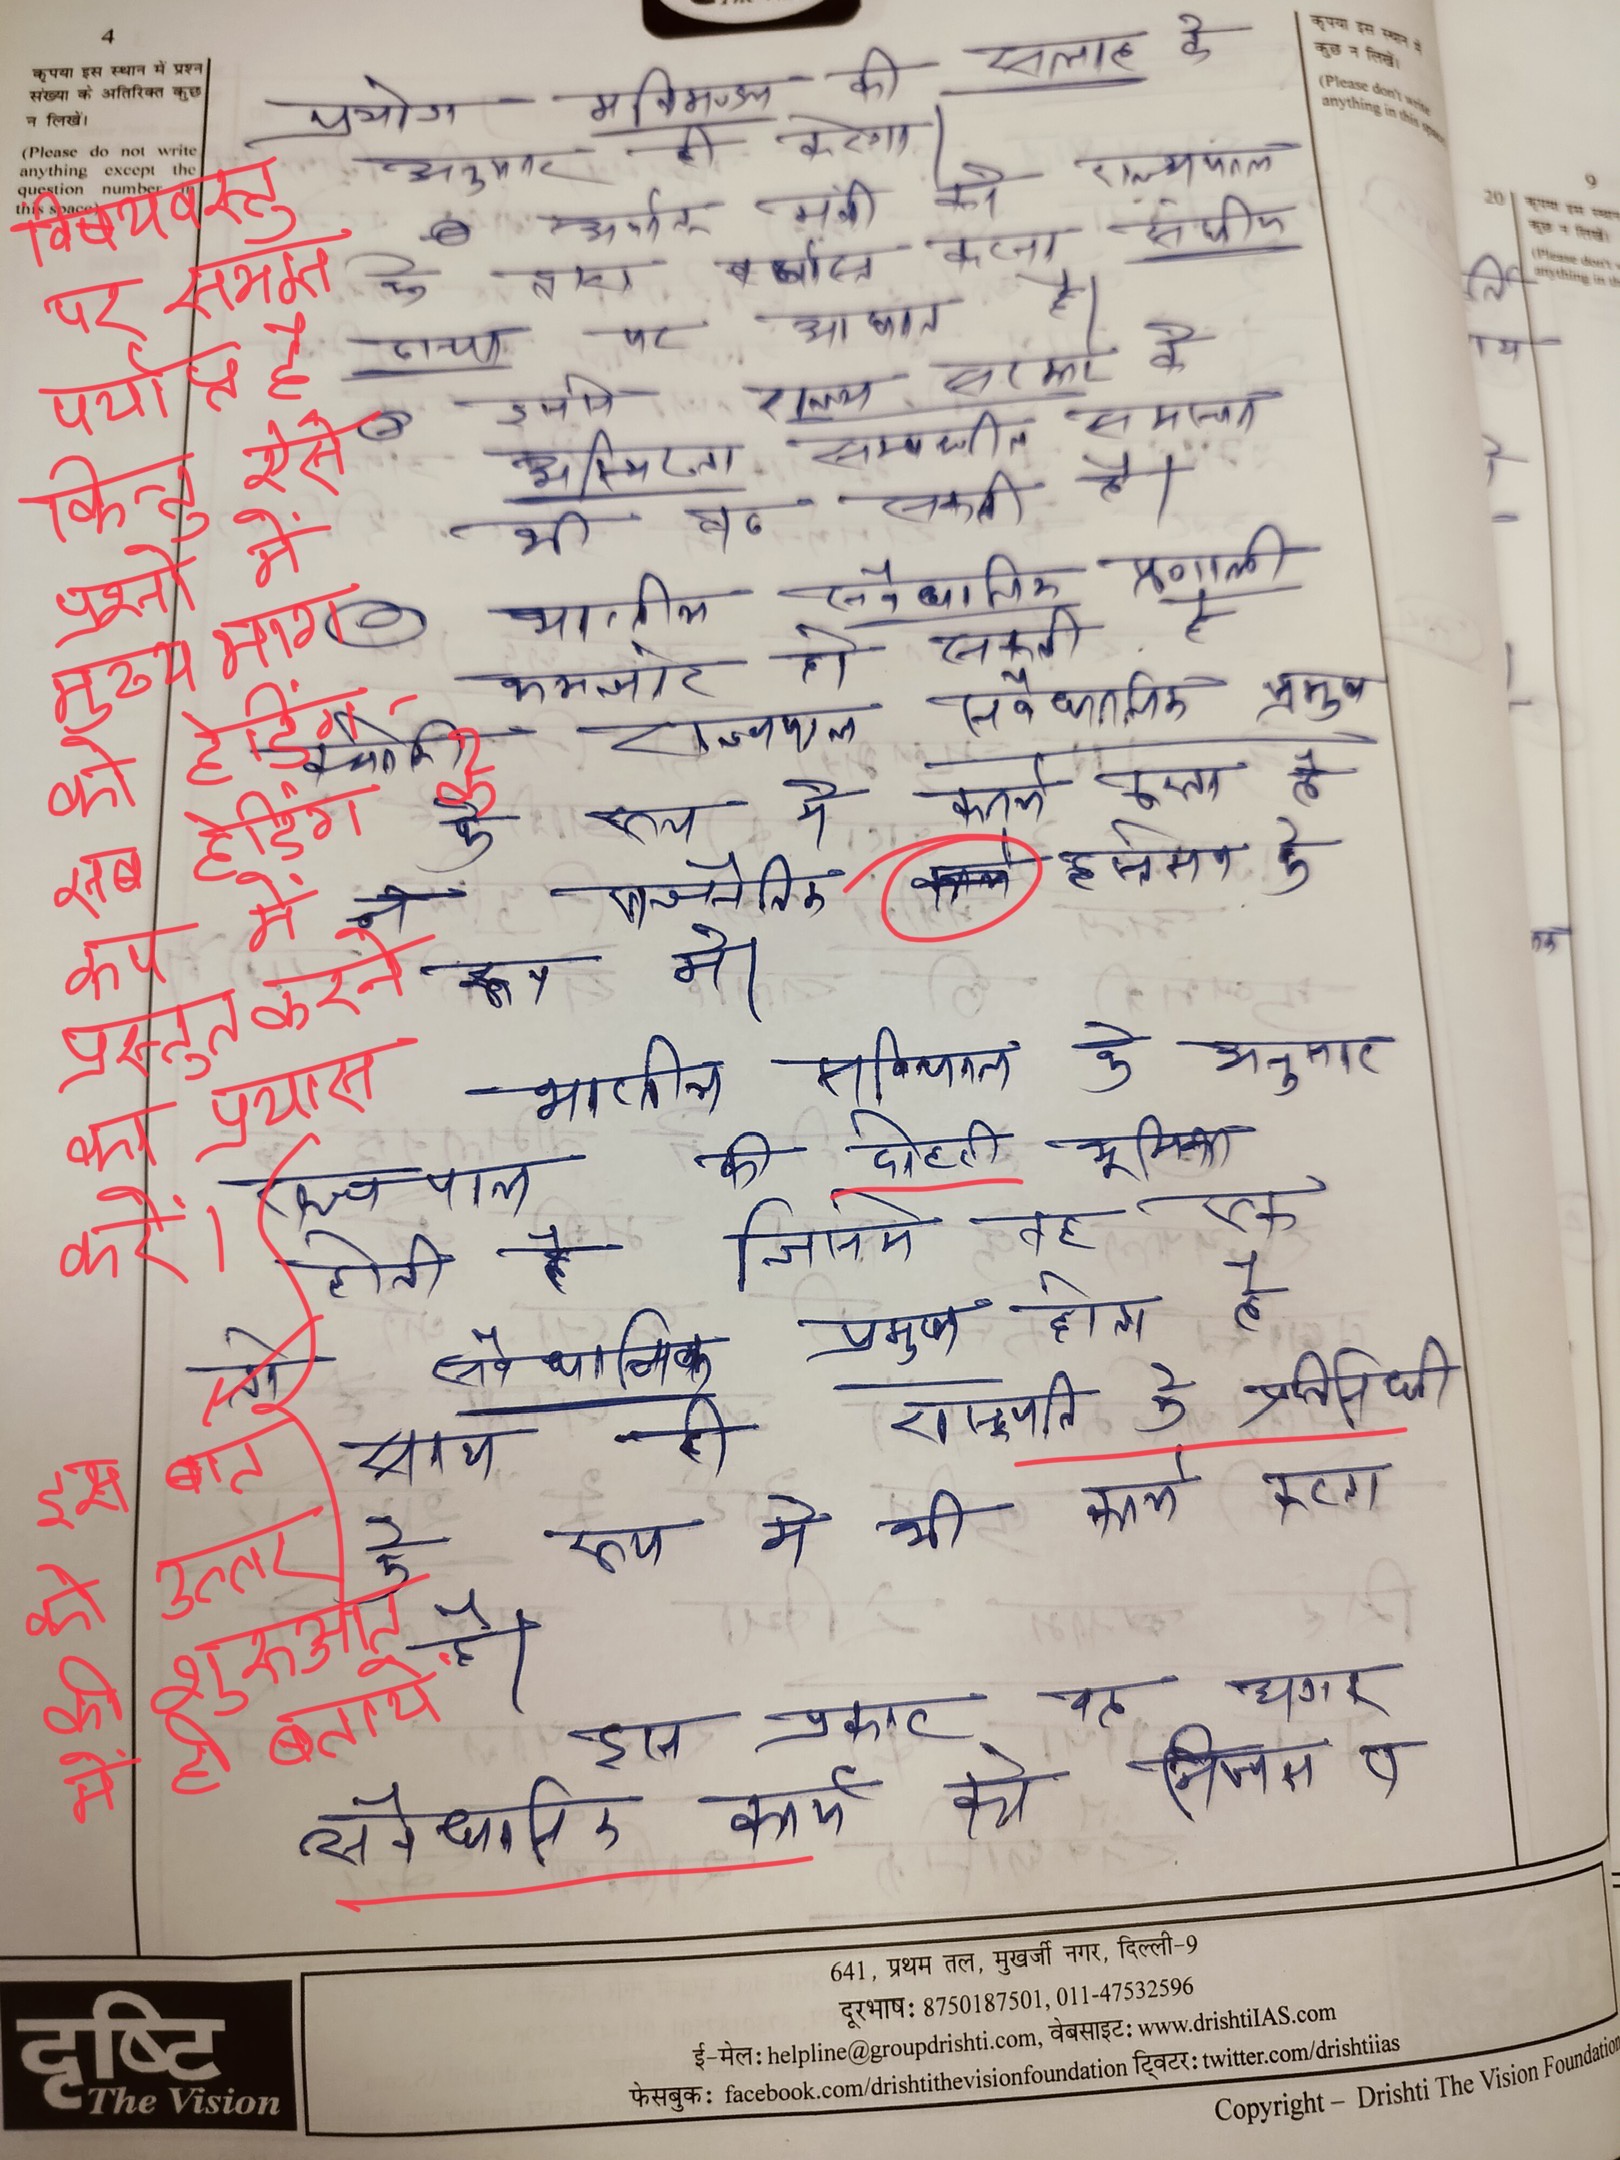 4
कृपया इस स्थान में प्रश्न
संख्या के अतिरिक्त कुछ
न लिखें।
(Please do not write
anything except the
question number in
this space)
प्रयोग मंत्रिमण्डल की सलाह के
अनुसार ही करेगा।
मंत्री को राज्यपाल
के द्वारा बर्खास्त करना संघीय
ढाचा पर आघात है।
इससे राज्य सरकार के
अस्थिरता सम्बन्धीत समस्या
भी बढ़ सकती है।
भारतीय संवैधानिक प्रणाली
कमजोर हो सकती है
क्योंकि राज्यपाल संवैधानिक प्रमुख
के रूप में कार्य करता है
न राजनैतिक हस्तक्षेप के
रूप में।
भारतीय संविधान के अनुसार
राज्यपाल की दोहरी भूमिका
होती है जिसमे वह एक
संवैधानिक प्रमुख होता है
साथ ही राष्ट्रपति के प्रतिनिधी
के रूप मे भी कार्य करता
है।
इस प्रकार वह
संवैधानिक कार्य को
विषयवस्तु
पर समझ
पर्याप्त है
किन्तु ऐसे
प्रश्नों में
मुख्य भाग
को हेडिंग-
सब हेडिंग के
रूप में
प्रस्तुत करने
का प्रयास
करें।
इस बात
को उत्तर
की शुरुआत
में ही बतायें
कृपया इस स्थान में
कुछ न लिखें।
(Please don't write
anything in this space)
20
9
दृष्टि
The Vision
641, प्रथम तल, मुखर्जी नगर, दिल्ली-9
दूरभाष: 8750187501, 011-47532596
ई-मेल: helpline@groupdrishti.com, वेबसाइट: www.drishtiIAS.com
फेसबुक: facebook.com/drishtithevisionfoundation ट्विटर: twitter.com/drishtiias
Copyright – Drishti The Vision Foundation